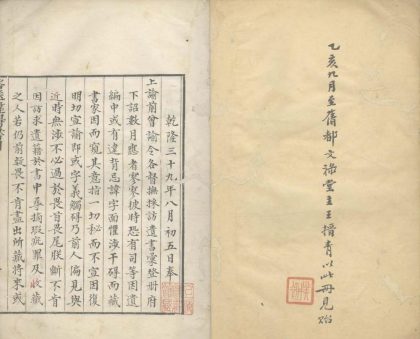 乙亥九月至舊都文祿堂主王搢青以此冊見貽
乾隆三十九年八月初五日奉
上諭前曾諭令各督撫採訪遺書彙登冊府
下詔數月應者寥寥彼時恐有司等因遺
編中或有違背忌諱字面懼涉干碍而藏
書家因而窺其意指一切秘而不宣因復
明切宣諭即或字義觸碍乃前人偏見與
近時無涉不必過於畏首畏尾朕斷不肯
因訪求遺籍於書中尋摘瑕疵罪及收藏
之人若仍前疑畏不肯盡出所藏將來或